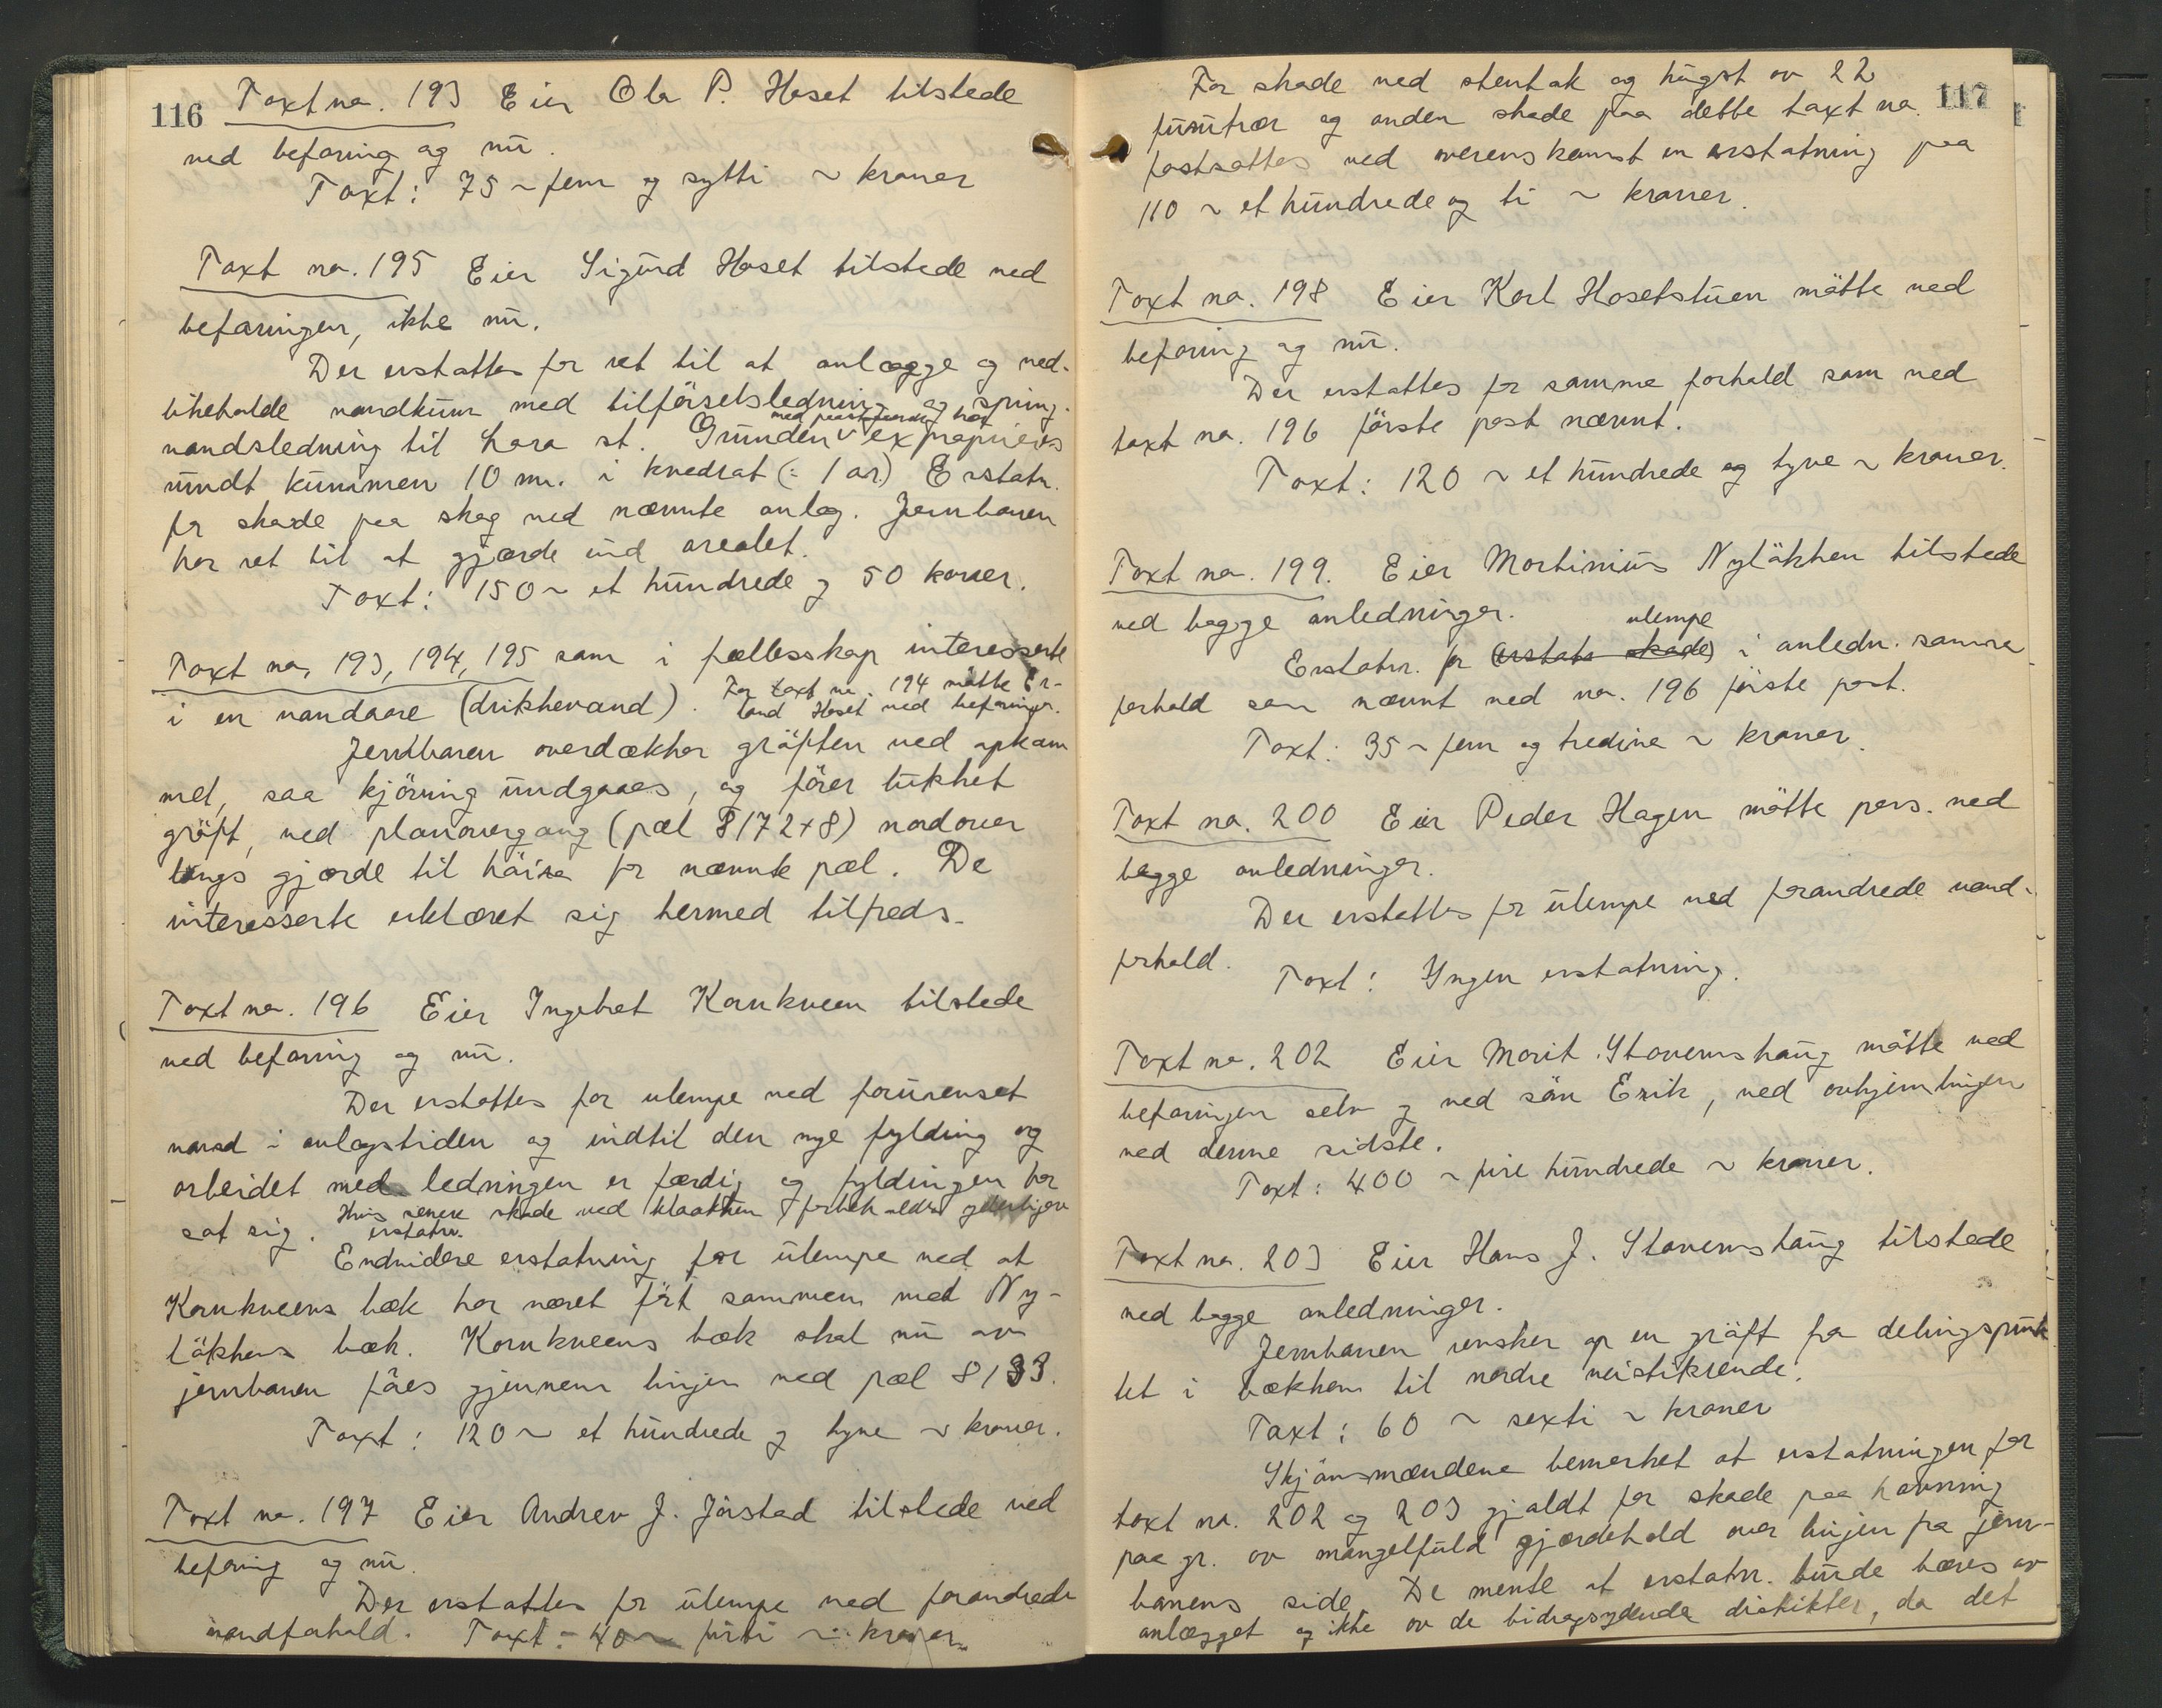 116
Taxt no. 193 Eier Ola P. Hoset tilstede
ved befaring og nu.
Taxt: 75 ~ fem og sytti ~ kroner
Taxt no. 195 Eier Sigurd Hoset tilstede ved
befaringen, ikke nu.
Der erstattes for ret til at anlægge og ved-
likeholde vandkum med tilförselsledning og spring-
med paastaaende skog
vandsledning til Lora st. Grunden v expropieres
rundt kummen 10 m. i kvadrat (= 1 ar) Erstatn.
for skade paa skog ved nævnte anlæg. Jernbanen
har ret til at gjærde ind arealet.
Taxt: 150 ~ et hundrede og 50 kroner.
Taxt no. 193, 194, 195 som i fællesskap interesserte
i en vandaare (drikkevand). For taxt no. 194 mötte Er-
land Hoset ved befaringen.
Jernbanen overdækker gröften ved opkom
met, saa kjöring undgaaes, og förer lukket
gröft, ved planovergang (pæl 8172+8) nordover
langs gjærde til höire for nævnte pæl. De
interesserte erklæret sig hermed tilfreds.
Taxt no. 196 Eier Ingebret Kornkveen tilstede
ved befaring og nu.
Der erstattes for ulempe ved forurenset
vand i anlægstiden og indtil den nye fylding og
arbeidet med ledningen er færdig og fyldingen har
sat sig. Hvis senere skade ved kloakken forbeholdes yderligere
erstatn.
Endvidere erstatning for ulempe ved at
Kornkveens bæk har været fört sammen med Ny-
lökkens bæk. Kornkveens bæk skal nu av
jernbanen föres gjennem linjen ved pæl 8133.
Taxt: 120 ~ et hundrede og tyve ~ kroner.
Taxt no. 197 Eier Andrev J. Jörstad tilstede ved
befaring og nu.
Der erstattes for ulempe ved forandrede
vandforhold. Taxt: 40 ~ firti ~ kroner.
117
For skade ved stentak og hugst av 22
furutrær og anden skade paa dette taxt no.
fastsattes ved overenskomst en erstatning paa
110 ~ et hundrede og ti ~ kroner.
Taxt no. 198 Eier Karl Hosetstuen mötte ved
befaring og nu.
Der erstattes for samme forhold som ved
taxt no. 196 förste post nævnt.
Taxt: 120 ~ et hundrede og tyve ~ kroner.
Taxt no. 199. Eier Martinius Nylökken tilstede
ved begge anledninger.
ulempe
Erstatn. for (erstatn skade) i anledn. samme
forhold som nævnt ved no. 196 förste post.
Taxt: 35 ~ fem og tredive ~ kroner.
Taxt no. 200 Eier Peder Hagen mötte pers. ved
begge anledninger.
Der erstattes for ulempe ved forandrede vand-
forhold.
Taxt: Ingen erstatning.
Taxt no. 202 Eier Marit Stavemshaug mötte ved
befaringen selv og ved sön Erik, ved avhjemlingen
ved denne sidste.
Taxt: 400 ~ fire hundrede ~ kroner.
Taxt no. 203 Eier Hans J. Stavemshaug tilstede
ved begge anledninger.
Jernbanen rensker op en gröft fra delingspunk
tet i bækken til nordre veistikrende.
Taxt: 60 ~ sexti ~ kroner
Skjönsmændene bemerket at erstatningen for
taxt no. 202 og 203 gjaldt for skade paa havning
paa gr. av mangelfuld gjærdehold over linjen fra jern-
banens side. De mente at erstatn. burde bæres av
anlægget og ikke av de bidragsydende distrikter, da det